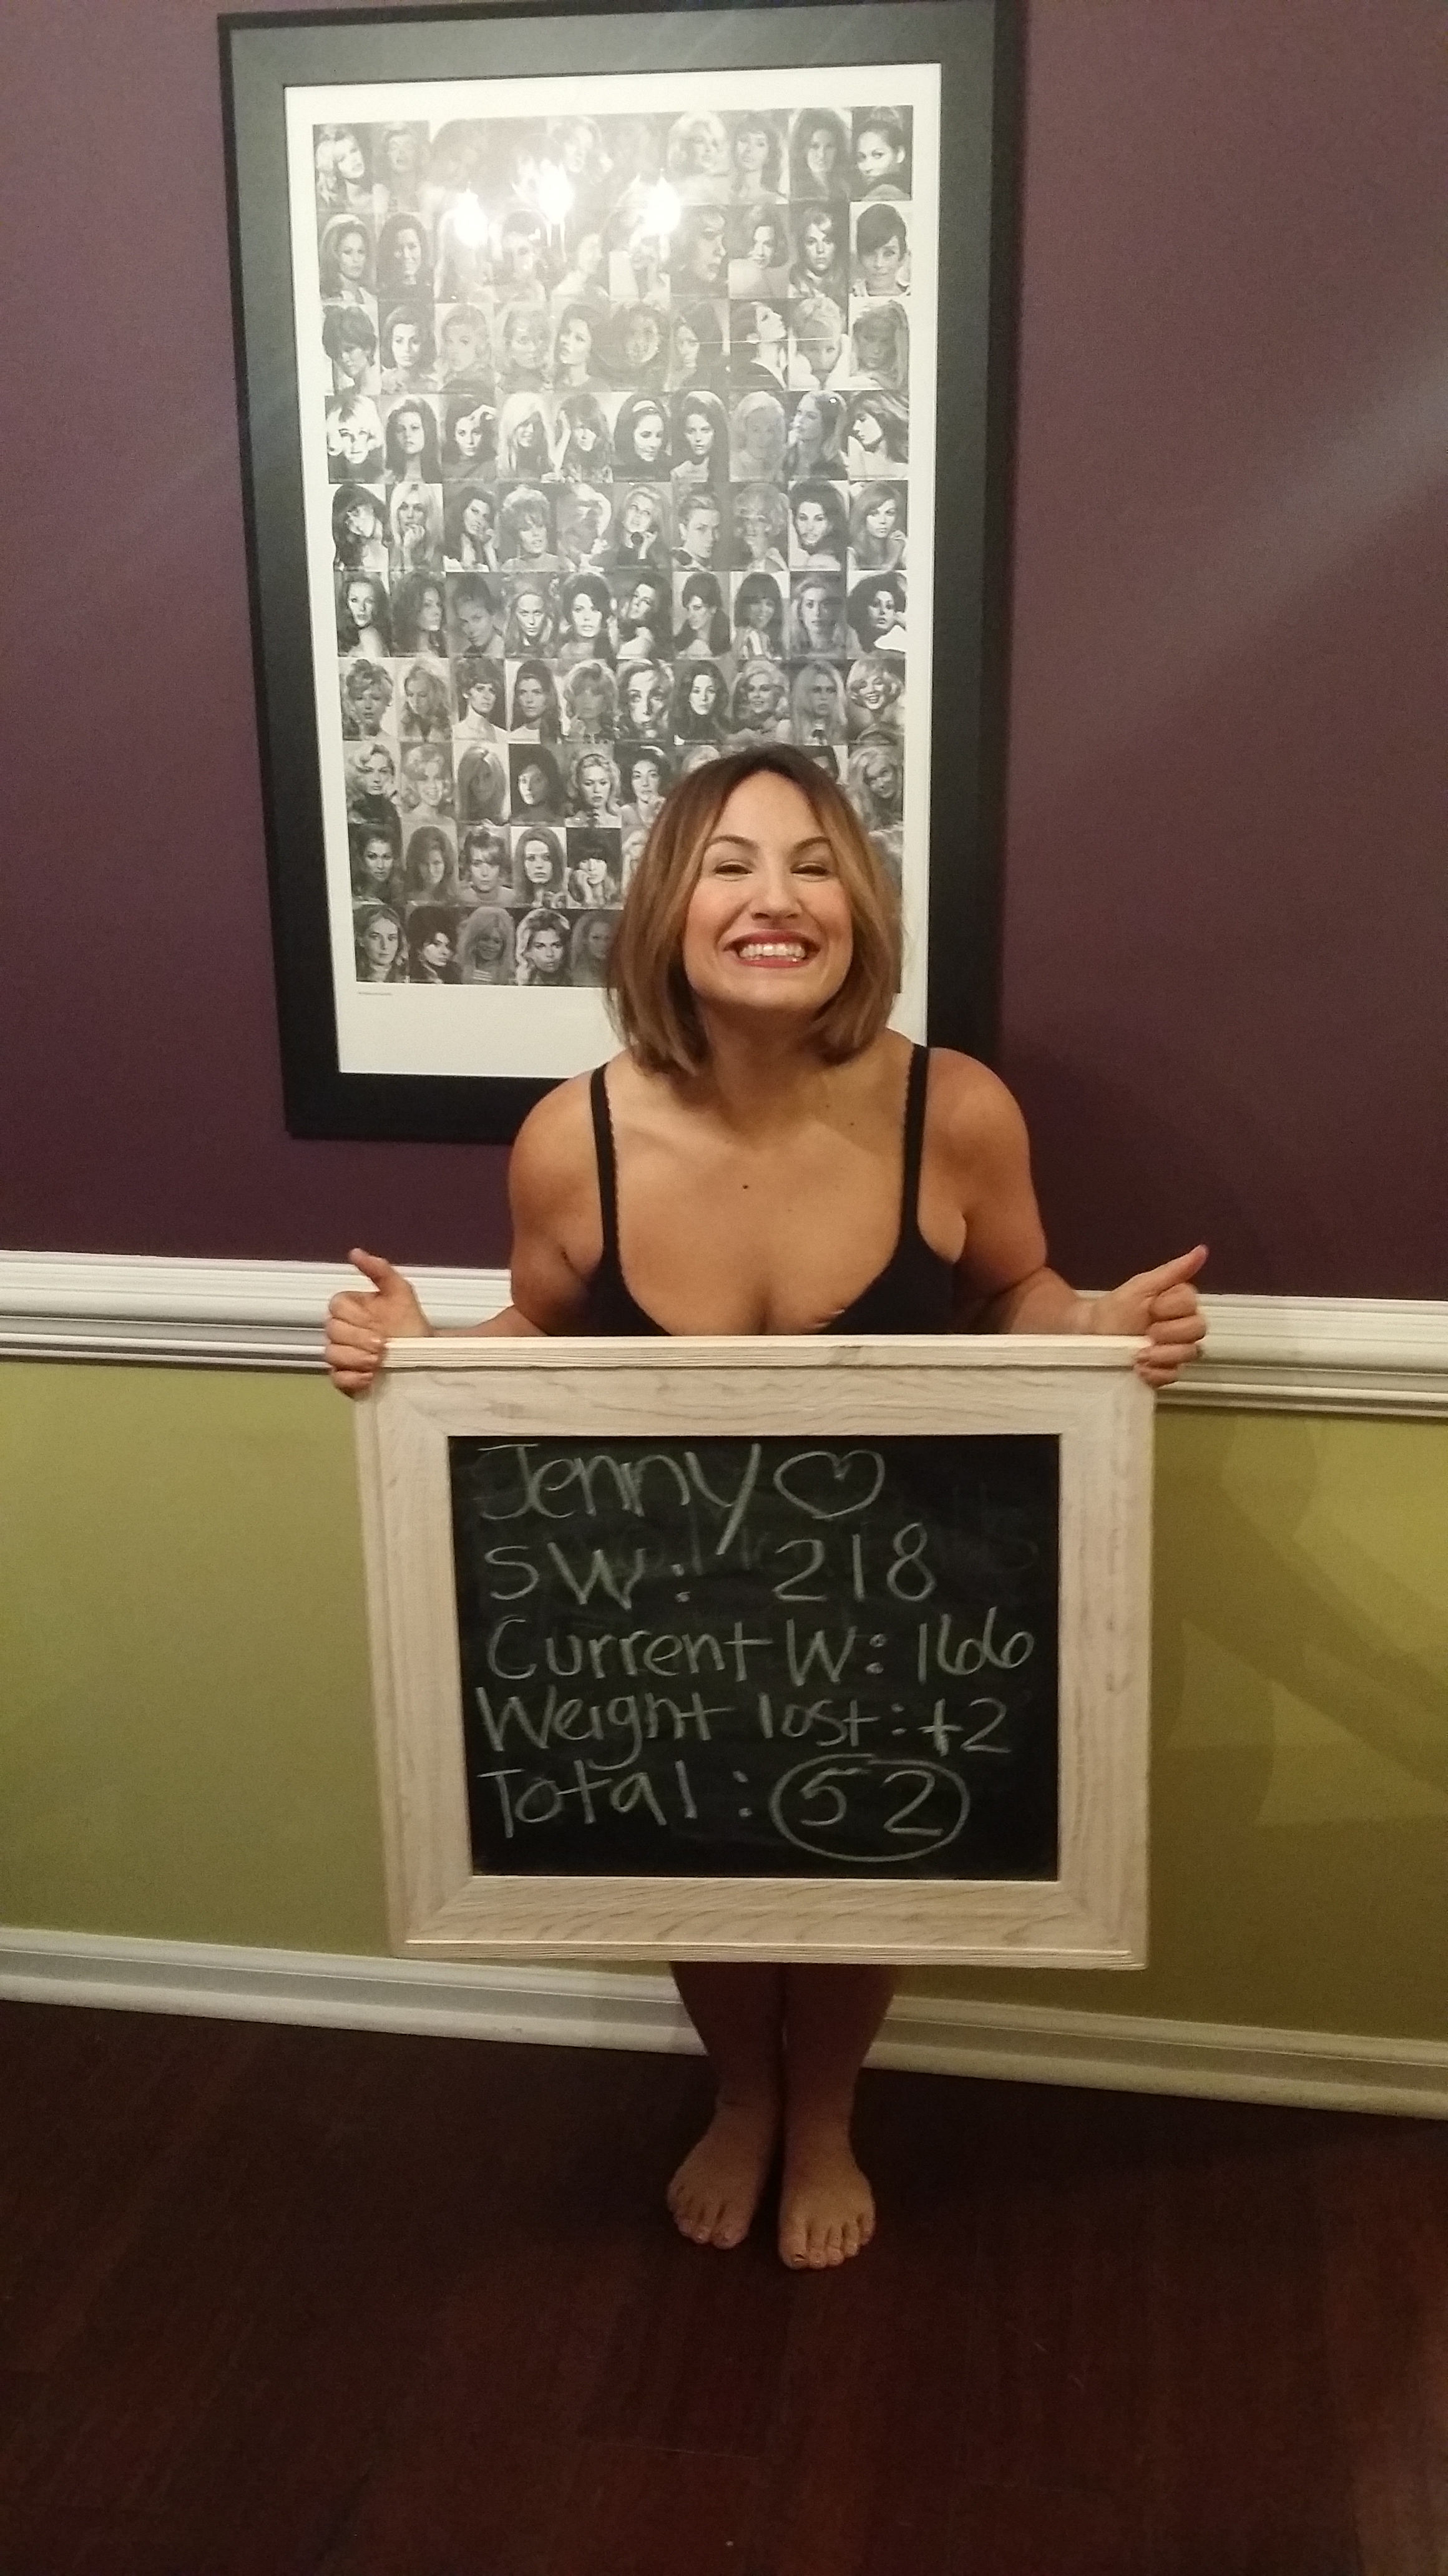 Jenny ♡
SW: 218
Current W: 166
Weight lost: +2
Total: 52